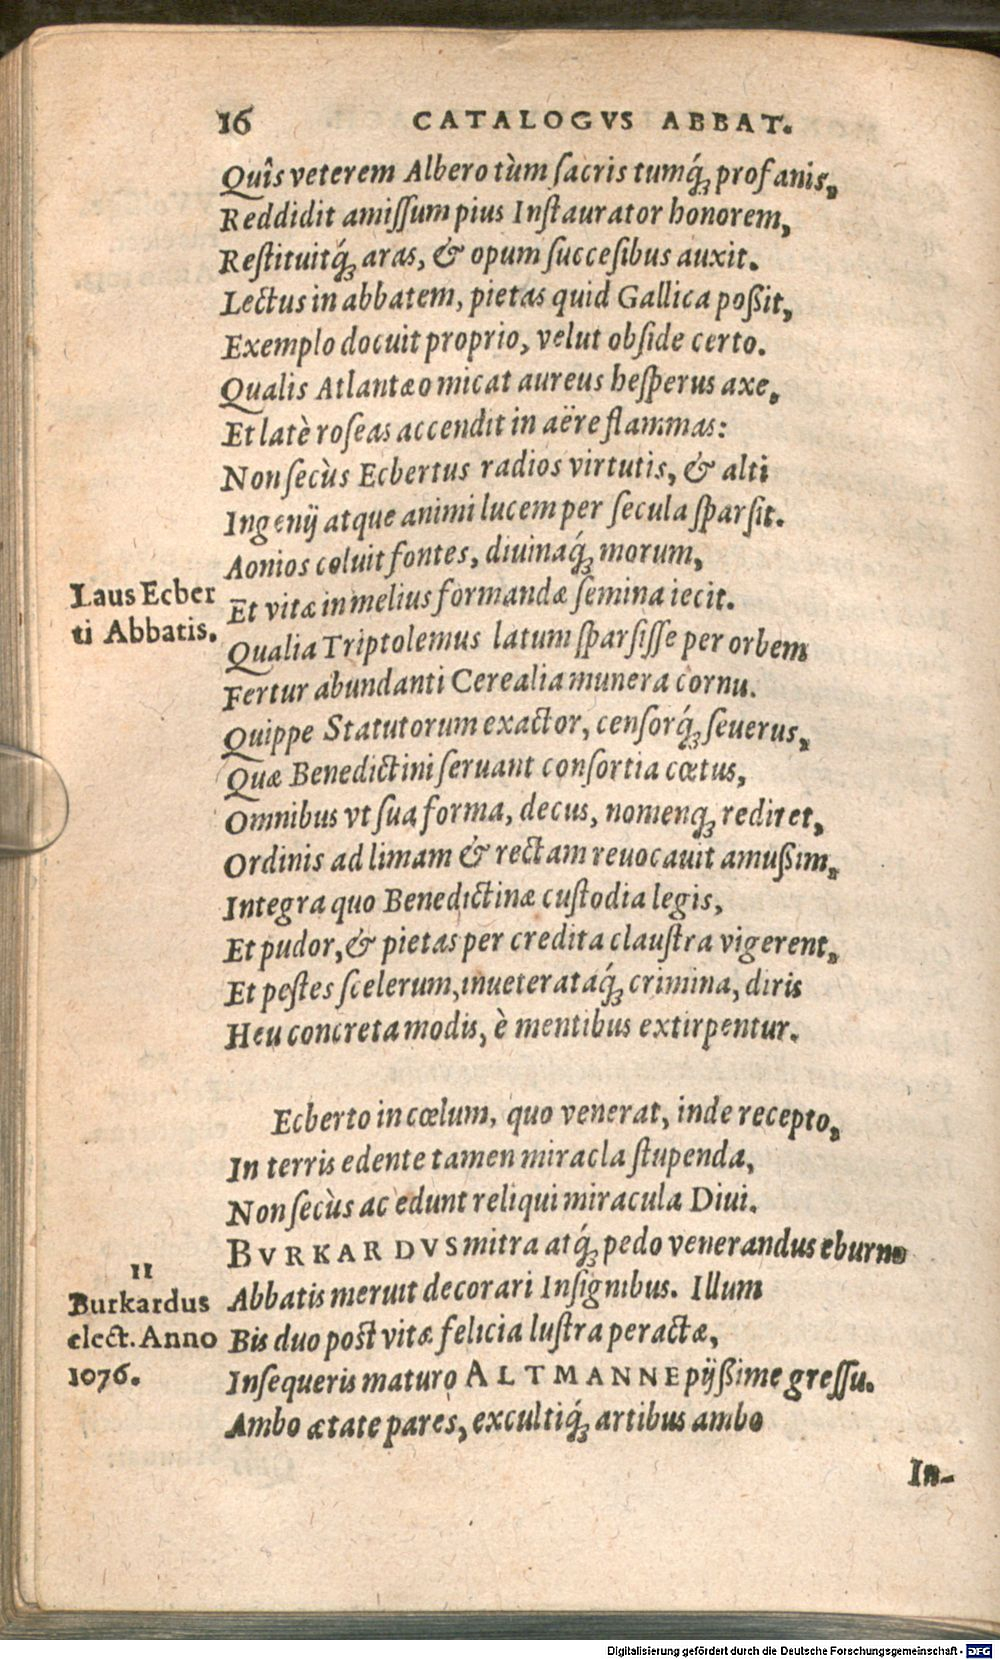 16 CATALOGVS ABBAT.
Quîs veterem Albero tùm ſacris tumq́ꝫ profanis,
Reddidit amiſſum pius Inſtaurator honorem,
Reſtituitq́ꝫ aras, & opum ſucceſibus auxit.
Lectus in abbatem, pietas quid Gallica poßit,
Exemplo docuit proprio, velut obſide certo.
Qualis Atlantæo micat aureus heſperus axe,
Et latè roſeas accendit in aëre flammas:
Non ſecùs Ecbertus radios virtutis, & alti
Ingenij atque animi lucem per ſecula ſparſit.
Aonios coluit fontes, diuinaq́ꝫ morum,
Laus Ecber
ti Abbatis.
Et vitæ in melius formandæ ſemina iecit.
Qualia Triptolemus latum ſparſiſſe per orbem
Fertur abundanti Cerealia munera cornu.
Quippe Statutorum exactor, cenſorq́ꝫ ſeuerus,
Quæ Benedictini ſeruant conſortia cœtus,
Omnibus vt ſua forma, decus, nomenqꝫ rediret,
Ordinis ad limam & rectam reuocauit amußim,
Integra quo Benedictinæ cuſtodia legis,
Et pudor, & pietas per credita clauſtra vigerent,
Et peſtes ſcelerum, inueterataq́ꝫ crimina, diris
Heu concreta modis, è mentibus extirpentur.
Ecberto in cœlum, quo venerat, inde recepto,
In terris edente tamen miracla ſtupenda,
Non ſecùs ac edunt reliqui miracula Diui.
BVRKARDVS mitra atq́ꝫ pedo venerandus eburno
11
Burkardus
elect. Anno
1076.
Abbatis meruit decorari Inſignibus. Illum
Bis duo poſt vitæ felicia luſtra peractæ,
Inſequeris maturo ALTMANNE pijßime greſſu.
Ambo ætate pares, excultiq́ꝫ artibus ambo
In-
Digitalisierung gefördert durch die Deutsche Forschungsgemeinschaft - DFG